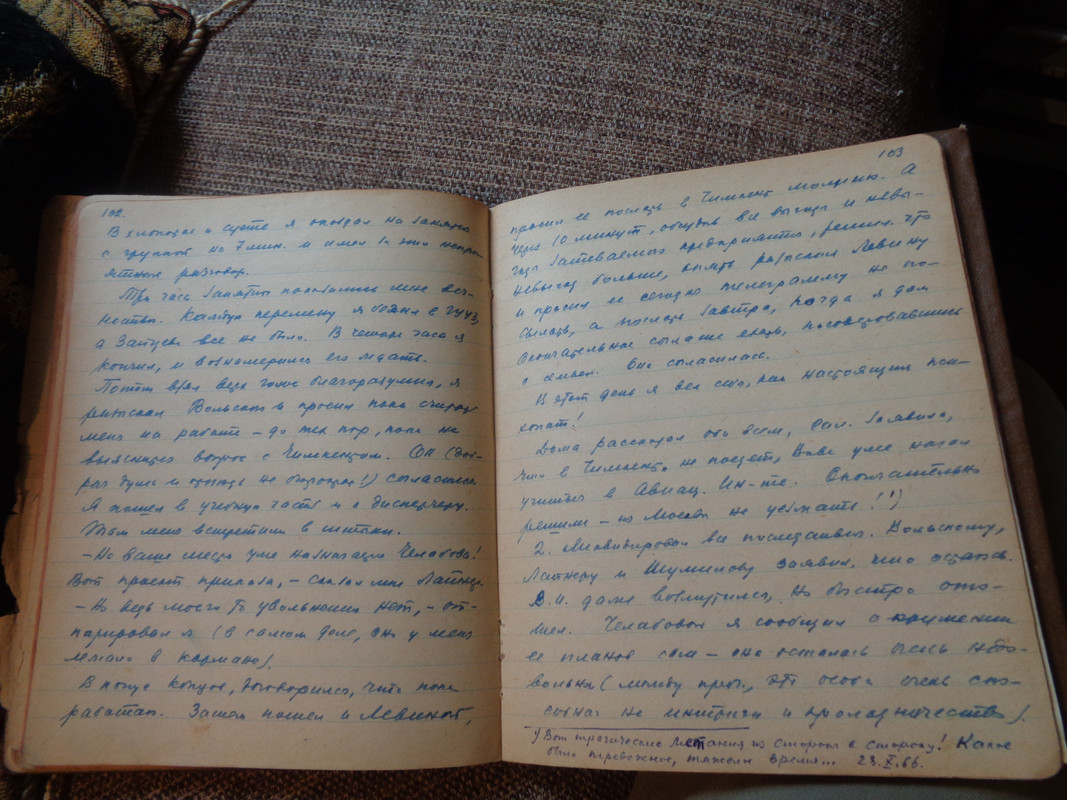 102.
В хлопотах и суете я опоздал на занятия
с группой на 7 мин. и имел из-за этого непри-
ятный разговор.
Три часа занятий показались мне веч-
ностью. Каждую перемену я бегал в ГУУЗ,
а Зайцева все не было. В четыре часа я
кончил, и вознамерился его ждать.
Потом взял верх голос благоразумия, я
разыскал Вольского и просил пока считать
меня на работе – до тех пор, пока не
выяснится вопрос с Чимкентом. Он
душа и никогда не согласился
Я пошел в учебную часть и к диспетчеру.
Там меня встретили в штыки.
– На Ваше место уже назначили Челабову!
Вот проект приказа, – сказал мне
– Но ведь моего-то увольнения нет, – от-
парировал я (в самом деле, оно у меня
лежало в кармане).
В конце концов, договорились, что пока
работаю. Затем пошел к Левиной,
103
просил ее послать в Чимкент молнию. А
через 10 минут, обсудив все выгоды и невы-
годы затеваемого предприятия, решил, что
невыгод больше, опять разыскал Левину
и просил ее сегодня телеграмму не по-
сылать, а послать завтра, когда я дам
окончательное согласие ехать, посоветовавшись
с семьей. Она согласилась.
В этот день я вел себя, как настоящий пси-
хопат!
Дома рассказал обо всем, Гал. заявила,
что в Чимкент не поедет, Вове уже начал
учиться в Авиац. Ин-те. Окончательно
решили – из Москвы не уезжать! ¹)
2. Ликвидировал все последствия. Вольскому,
и Шумилову заявил, что остаюсь.
В.И. даже возмутился, но быстро ото-
шел. Челабовой я сообщил о крушении
ее планов сам – она осталась очень недо-
вольна (между проч., эта особа очень спо-
собная на интриги и пролазничество).
¹) Вот трагические метания из стороны в сторону! Какое
было тревожное, тяжелое время... 23.X.66.